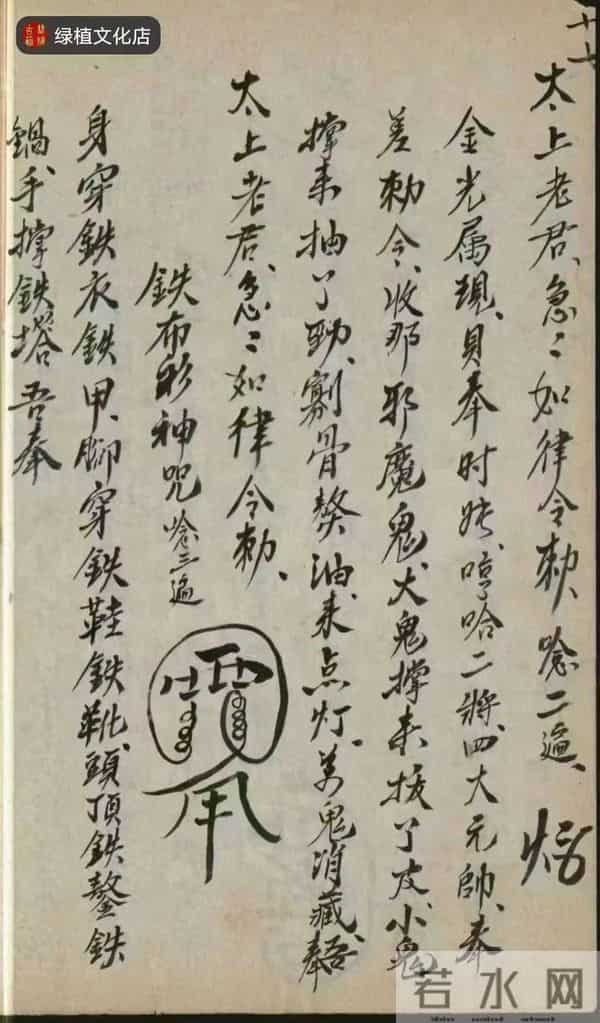 绿植文化店
十七
太上老君、急々如律令勅、唸二遍、
金光属現、貝奉时姥、哼哈二將、四大元帥、奉
差勅令、收那邪魔鬼、大鬼撑来拔了皮、小鬼
撑来抽了勁、剐骨熬油、来点灯、万鬼消藏、吾奉
太上老君、急々如律令勅、
鉄布衫神咒 唸三遍
身穿鉄衣鉄甲、脚穿鉄鞋鉄靴、頭頂鉄鏊鉄
鍋、手撑鉄塔 吾奉
若水网